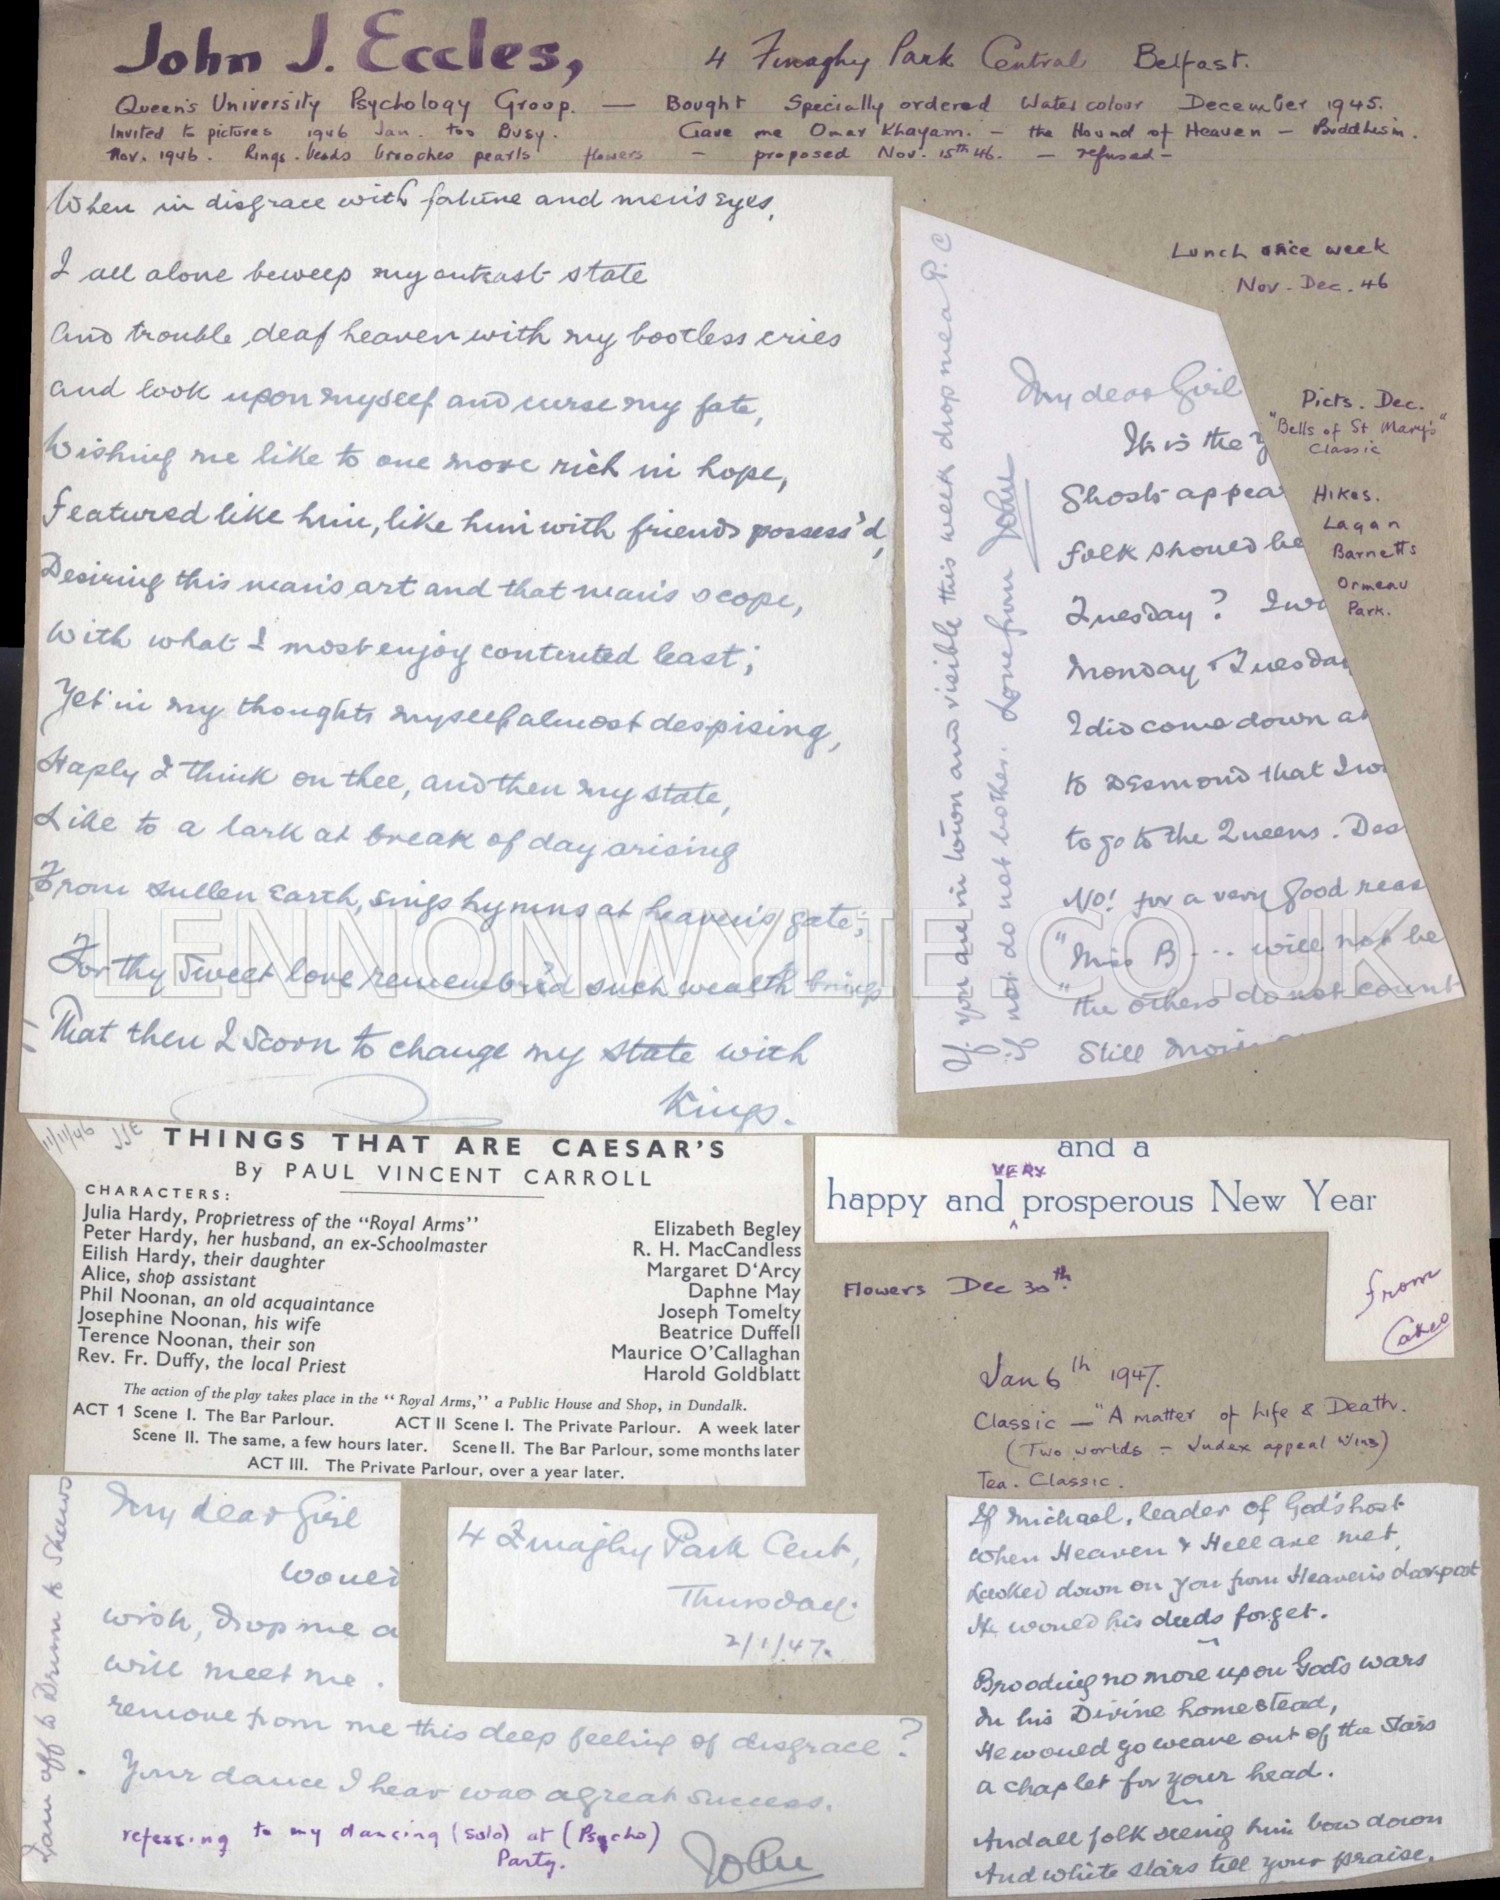 John J. Eccles,
4 Finaghy Park Central Belfast.
Queen's University Psychology Group. — Bought Specially ordered Water colour December 1945.
Invited to pictures 1946 Jan. too Busy. Gave me Omar Khayam. — the Hound of Heaven — Buddhism.
Nov. 1946. Rings. beads brooches pearls flowers — proposed Nov. 15th 46. — refused —
When in disgrace with fortune and men's eyes,
I all alone beweep my outcast state
And trouble deaf heaven with my bootless cries
and look upon myself and curse my fate,
Wishing me like to one more rich in hope,
Featured like him, like him with friends possess'd,
Desiring this man's art and that man's scope,
With what I most enjoy contented least;
Yet in my thoughts myself almost despising,
Haply I think on thee, and then my state,
Like to a lark at break of day arising
From sullen Earth, sings hymns at heaven's gate;
For thy sweet love remember'd such wealth brings
That then I scorn to change my state with
Kings.
If you are in town and visible this week drop me a P.C
if not do not bother. Love from John
My dear Girl
It is the
Ghosts appea
folk should be
Tuesday? I wo
Monday & Tuesday
I did come down a
to Desmond that I wo
to go to the Queens. Des
No! for a very good reas
"Miss B --- will not be
"the others do not count
Still
Lunch once week
Nov. Dec. 46
Picts. Dec.
"Bells of St Mary's"
Classic
Hikes.
Lagan
Barnetts
Ormeau
Park.
LENNONWYLIE.CO.UK
11/11/46 JJE
THINGS THAT ARE CAESAR'S
By PAUL VINCENT CARROLL
CHARACTERS:
Julia Hardy, Proprietress of the "Royal Arms" Elizabeth Begley
Peter Hardy, her husband, an ex-Schoolmaster R. H. MacCandless
Eilish Hardy, their daughter Margaret D'Arcy
Alice, shop assistant Daphne May
Phil Noonan, an old acquaintance Joseph Tomelty
Josephine Noonan, his wife Beatrice Duffell
Terence Noonan, their son Maurice O'Callaghan
Rev. Fr. Duffy, the local Priest Harold Goldblatt
The action of the play takes place in the "Royal Arms," a Public House and Shop, in Dundalk.
ACT 1 Scene I. The Bar Parlour. ACT II Scene I. The Private Parlour. A week later
Scene II. The same, a few hours later. Scene II. The Bar Parlour, some months later
ACT III. The Private Parlour, over a year later.
and a
VERY
happy and ^ prosperous New Year
From
Flowers Dec 30th.
Jan 6th 1947.
Classic — "A matter of Life & Death.
(Two worlds — Index appeal wins)
Tea. Classic.
I am off to Drum to Shaws
My dear Girl
would
wish, drop me a
will meet me.
remove from me this deep feeling of disgrace?
Your dance I hear was a great success.
referring to my dancing (solo) at (Psycho)
Party.
John
4 Finaghy Park Cent,
Thursday.
2/1/47.
If Michael, leader of God's host
When Heaven & Hell are met,
Looked down on you from Heaven's doorpost
He would his deeds forget.
Brooding no more upon God's wars
In his Divine homestead,
He would go weave out of the stars
a chaplet for your head.
And all folk seeing him bow down
And white stars tell your praise.